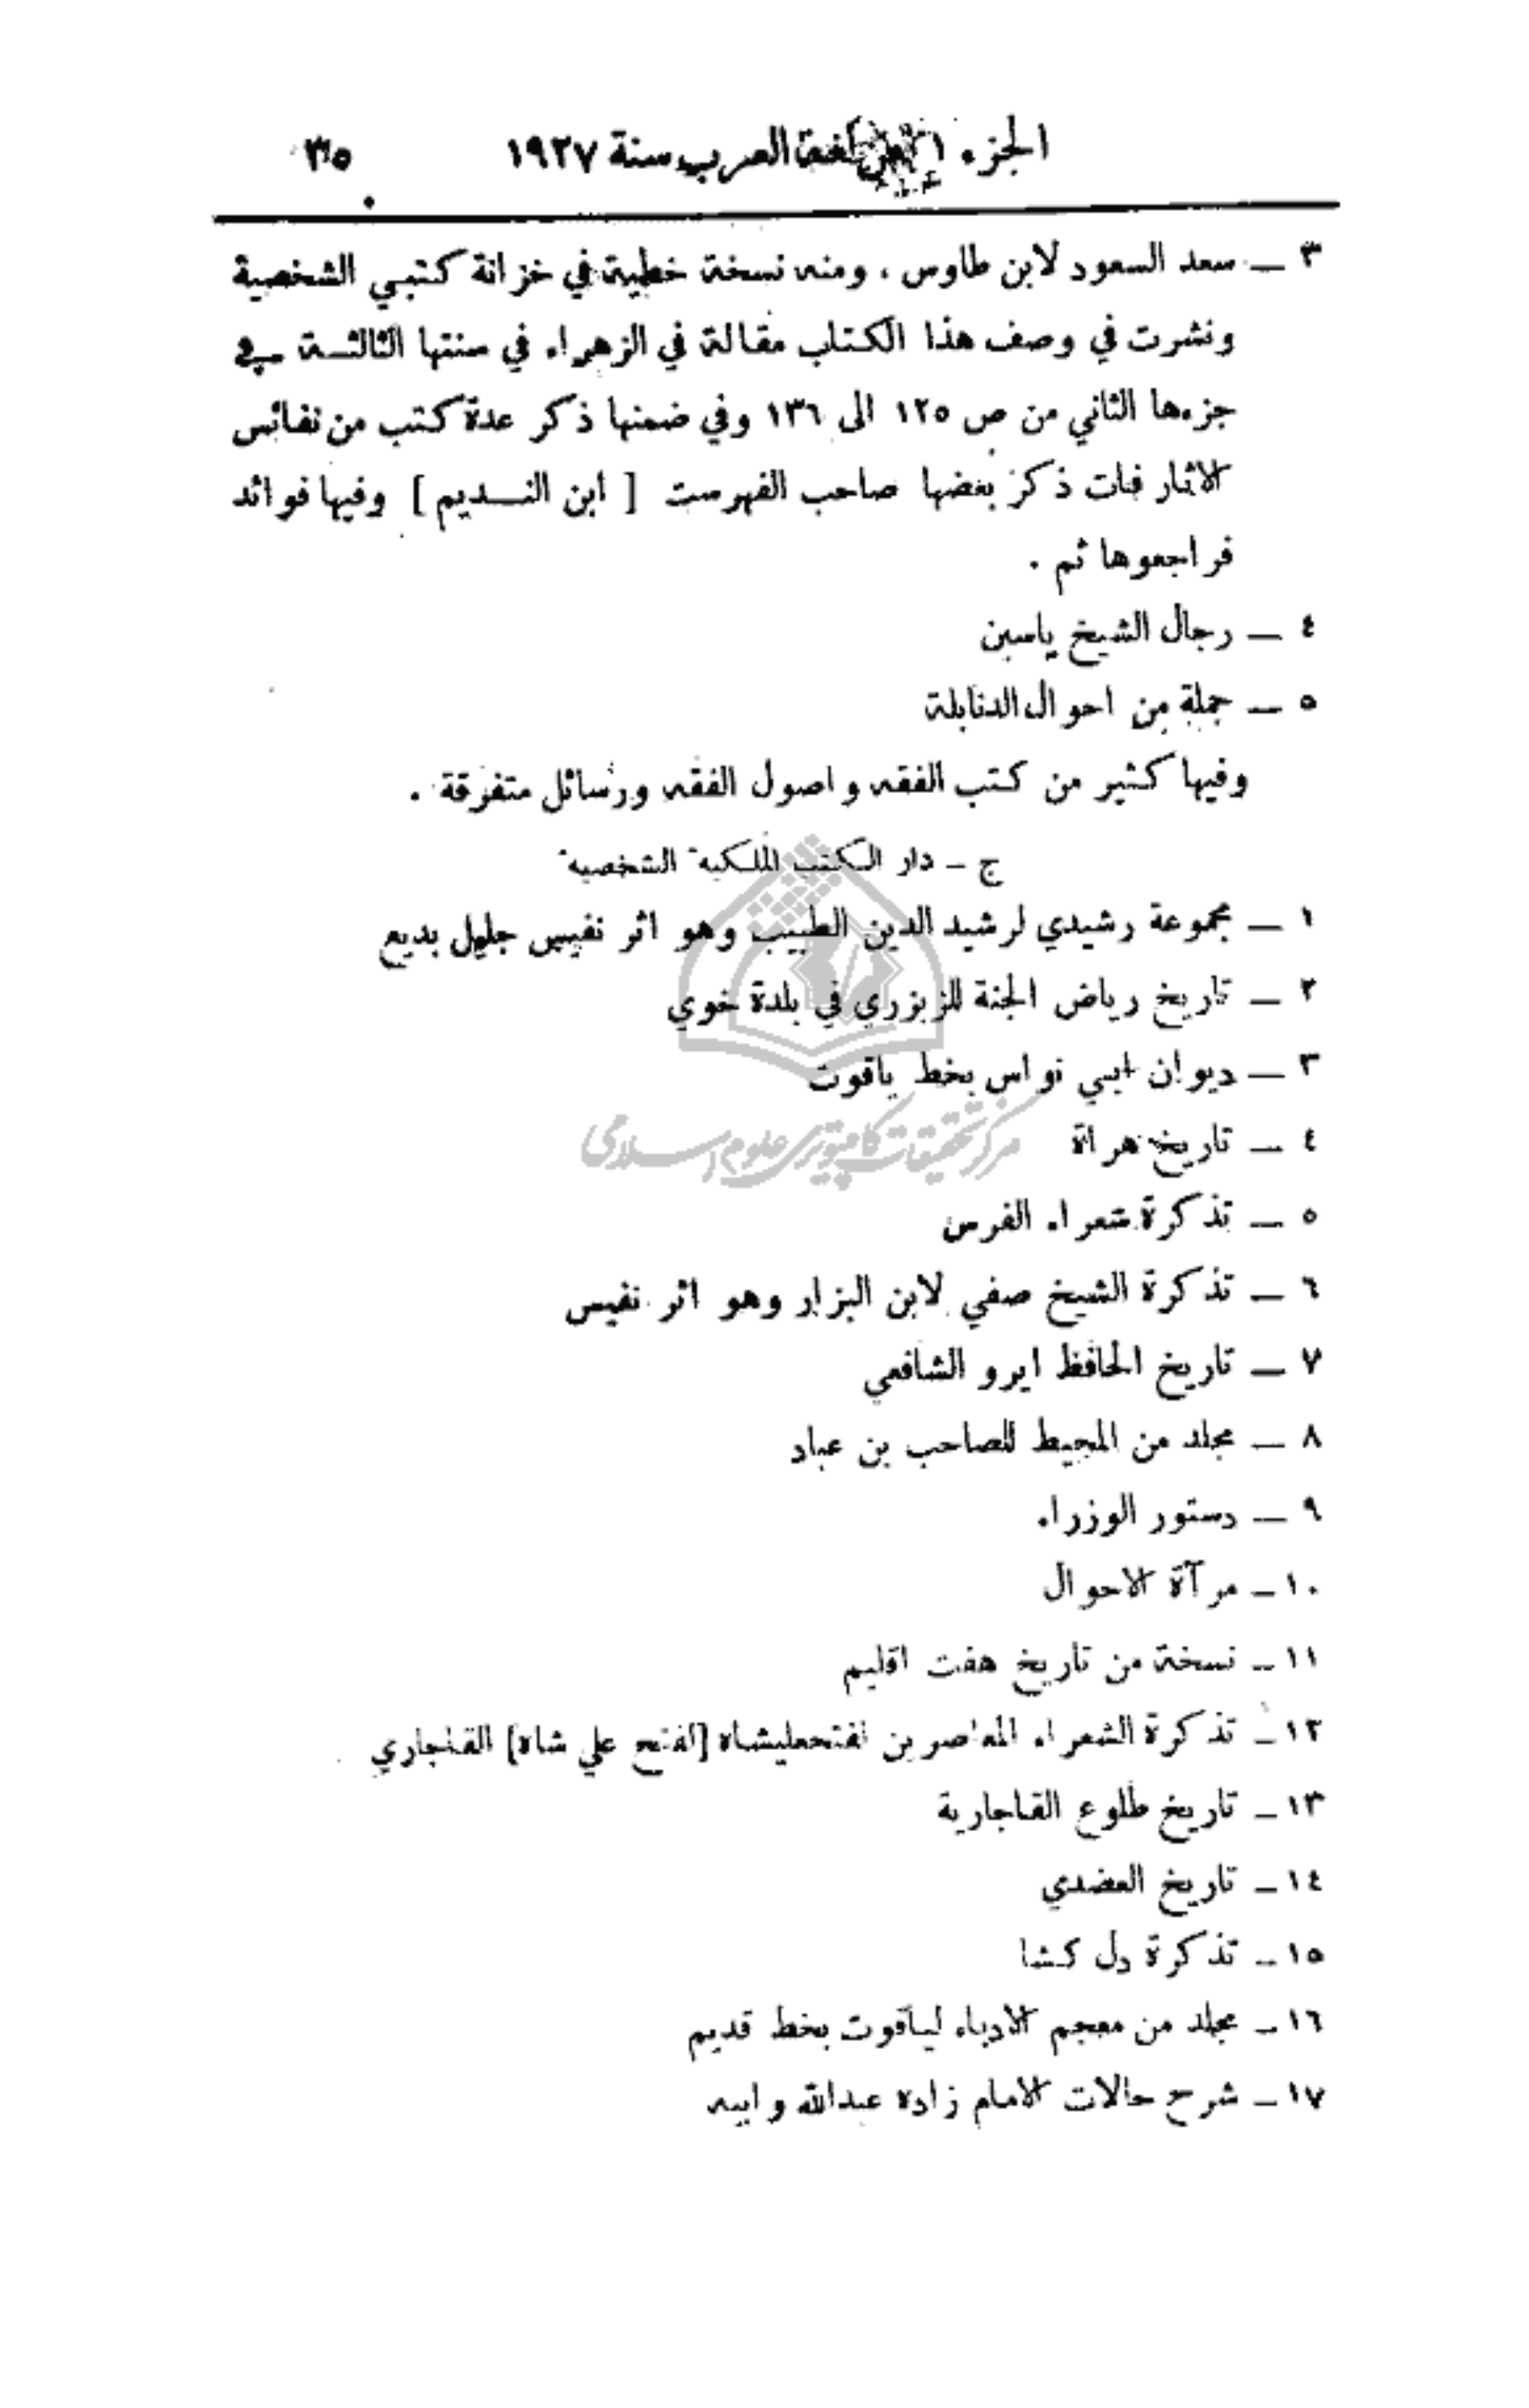 الجزء ١ من لغة العرب سنة ١٩٢٧ ٣٥
٣ — سعد السعود لابن طاوس ، ومنه نسخة خطية في خزانة كتبي الشخصية
ونشرت في وصف هذا الكتاب مقالة في الزهراء في سنتها الثالثة في
جزءها الثاني من ص ١٢٥ الى ١٣٦ وفي ضمنها ذكر عدة كتب من نفائس
الاثار فات ذكر بعضها صاحب الفهرست [ ابن النديم ] وفيها فوائد
فراجعوها ثم .
٤ — رجال الشيخ ياسين
٥ — جملة من احوال الدنابلة
وفيها كثير من كتب الفقه واصول الفقه ورسائل متفرقة .
ج — دار الكتب الملكية الشخصية
١ — مجموعة رشيدي لرشيد الدين الطبيب وهو اثر نفيس جليل بديع
٢ — تاريخ رياض الجنة للزبزري في بلدة خوي
٣ — ديوان ابي نواس بخط ياقوت
مركز تحقيقات كامپيوتری علوم اسلامی
٤ — تاريخ هراة
٥ — تذكرة شعراء الفرس
٦ — تذكرة الشيخ صفي لابن البزاز وهو اثر نفيس
٧ — تاريخ الحافظ ايرو الشافعي
٨ — مجلد من المحيط للصاحب بن عباد
٩ — دستور الوزراء
١٠ — مرآة الاحوال
١١ — نسخة من تاريخ هفت اقليم
١٢ — تذكرة الشعراء المعاصرين لفتحعليشاه [لفتح علي شاه] القاجاري
١٣ — تاريخ طلوع القاجارية
١٤ — تاريخ العضدي
١٥ — تذكرة دل كشا
١٦ — مجلد من معجم الادباء لياقوت بخط قديم
١٧ — شرح حالات الامام زاده عبدالله وابيه